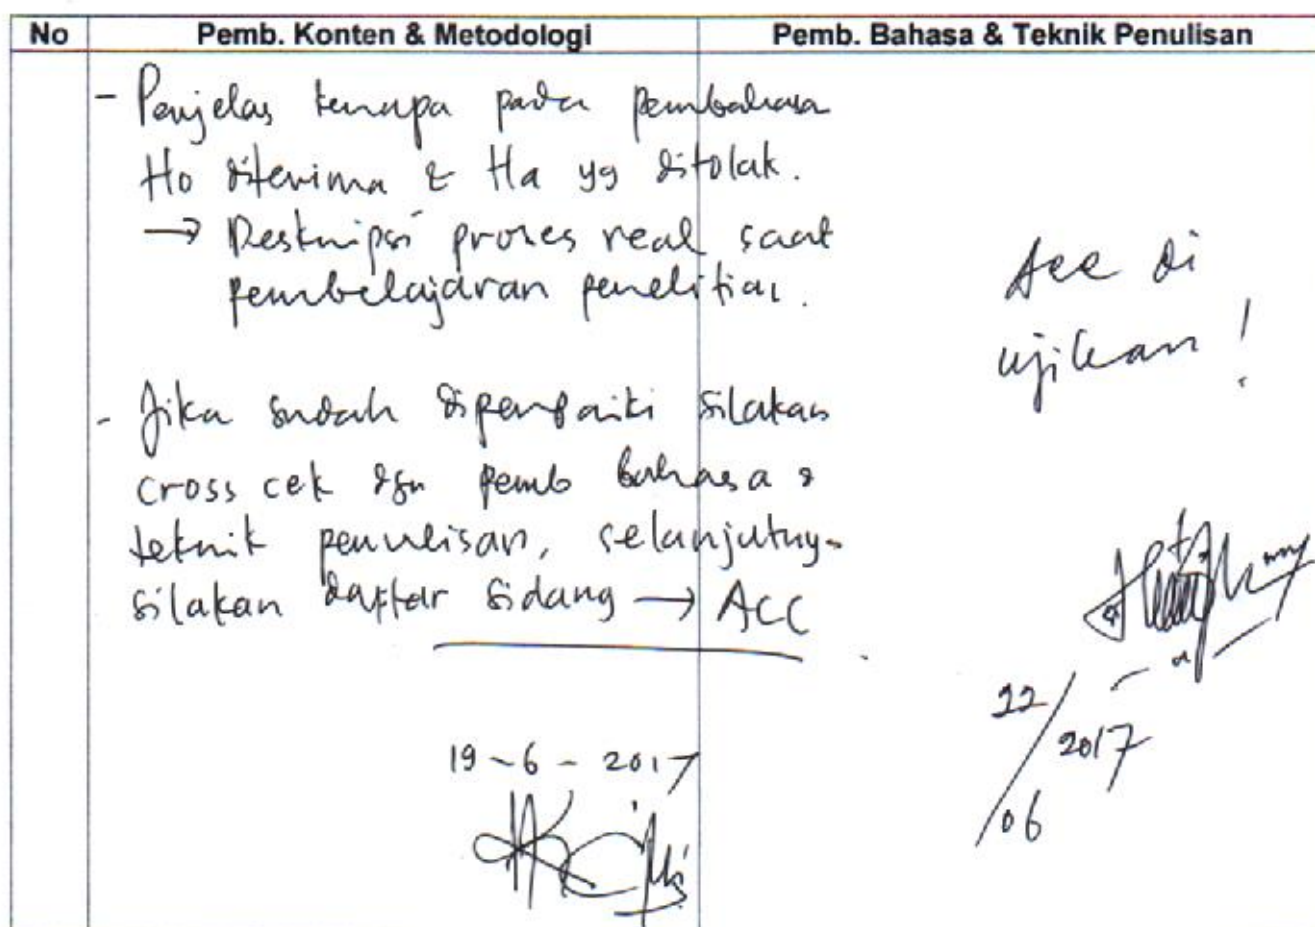 No Pemb. Konten & Metodologi Pemb. Bahasa & Teknik Penulisan
- Penjelas kenapa pada pembahasa
Ho diterima & Ha yg ditolak.
→ Deskripsi proses real saat
pembelajaran penelitian.
- Jika sudah diperbaiki silakan
cross cek dgn pemb bahasa &
teknik penulisan, selanjutnya
silakan daftar sidang → ACC
19-6-2017
Acc di
ujikan!
22/06 2017